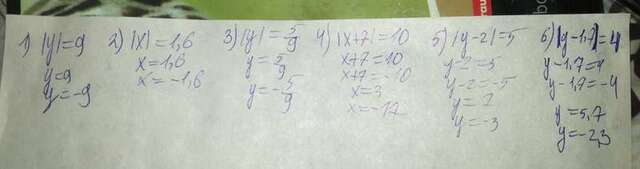 1) |y|=9
y=9
y=-9
2) |x|=1,6
x=1,6
x=-1,6
3) |y|=5/9
y=5/9
y=-5/9
4) |x+7|=10
x+7=10
x+7=-10
x=3
x=-17
5) |y-2|=5
y-2=5
y-2=-5
y=7
y=-3
6) |y-1,7|=4
y-1,7=4
y-1,7=-4
y=5,7
y=-2,3